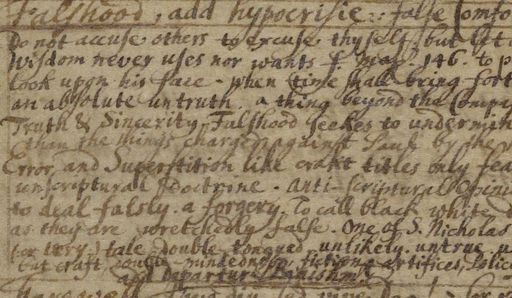 Falshood, add hypocrisie :: false Comfo
Do not accuse others to excuse thyself, but let
Wisdom never uses nor wants 146. to p
look upon his face. when time shall bring fort
an absolute untruth. a thing beyond the Compa
Truth & Sincerity, Falshood seekes to undermin
than the things charged against Paul by the
Error, and Superstition like crakt titles only fea
unscriptural Doctrine. Anti-scriptural Opini
to deal falsly. a forgery. To call black white
as they are wretchedly false. One of S. Nicholas
(or very) tale double tongued unlikely. untrue u
but craft, double mindedness fictions artifices, Polici